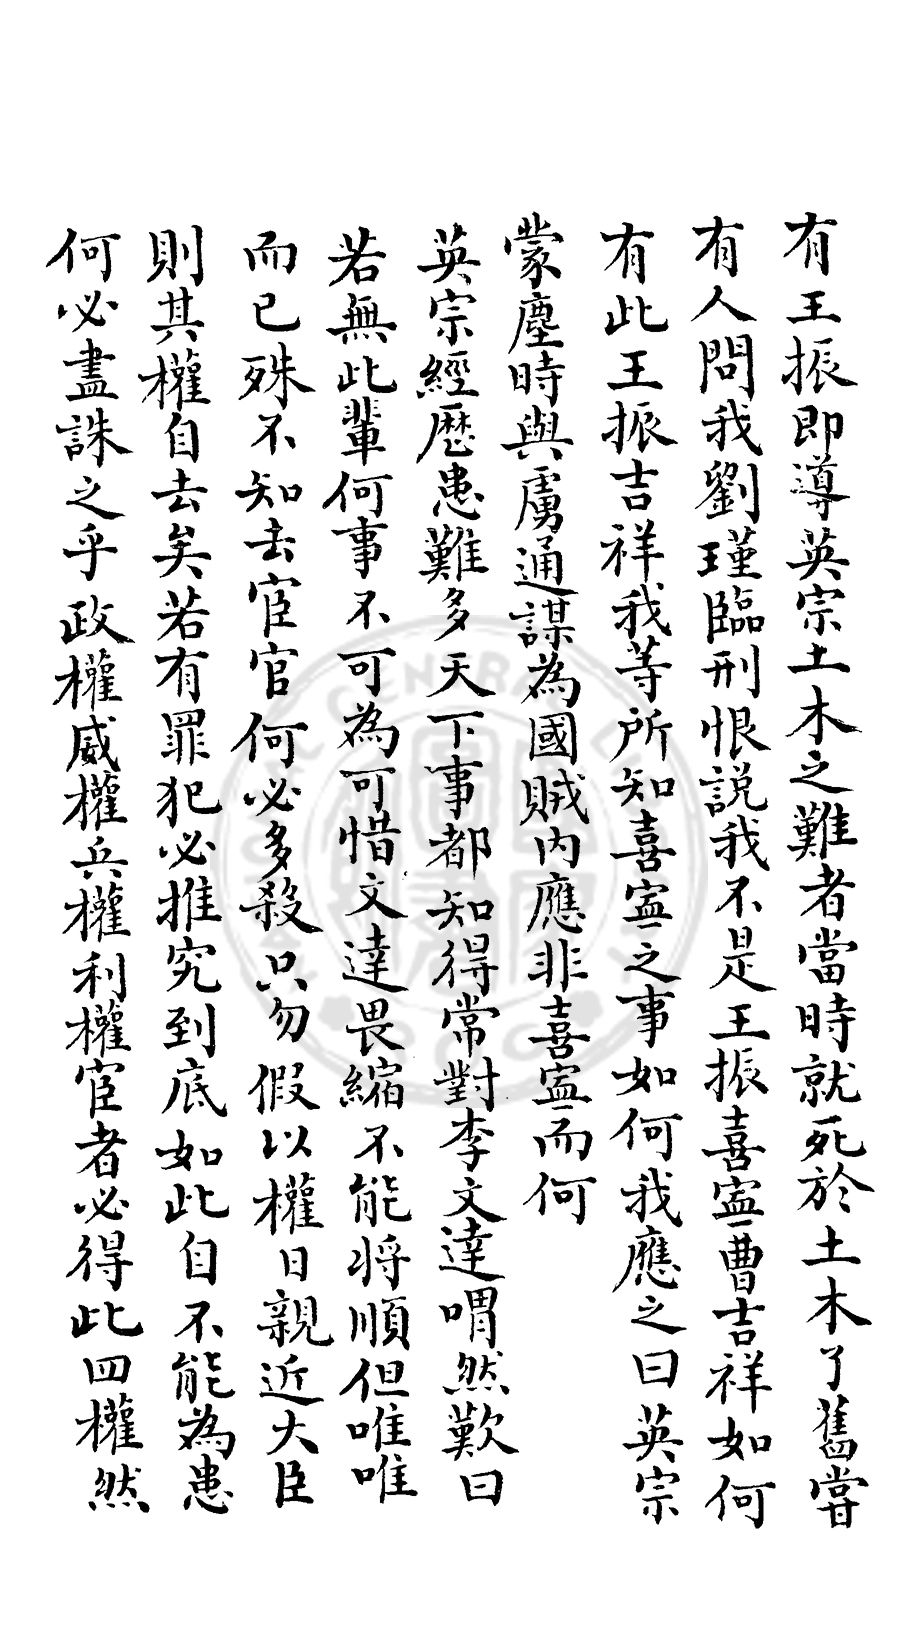 有王振即導英宗土木之難者當時就死於土木了舊嘗
有人問我劉瑾臨刑恨説我不是王振喜寧曹吉祥如何
有此王振吉祥我等所知喜寧之事如何我應之曰英宗
蒙塵時與虜通謀為國賊内應非喜寧而何
英宗經歷患難多天下事都知得常對李文達喟然歎曰
若無此輩何事不可為可惜文達畏縮不能将順但唯唯
而已殊不知去宦官何必多殺只勿假以權日親近大臣
則其權自去矣若有罪犯必推究到底如此自不能為患
何必盡誅之乎政權威權兵權利權宦者必得此四權然